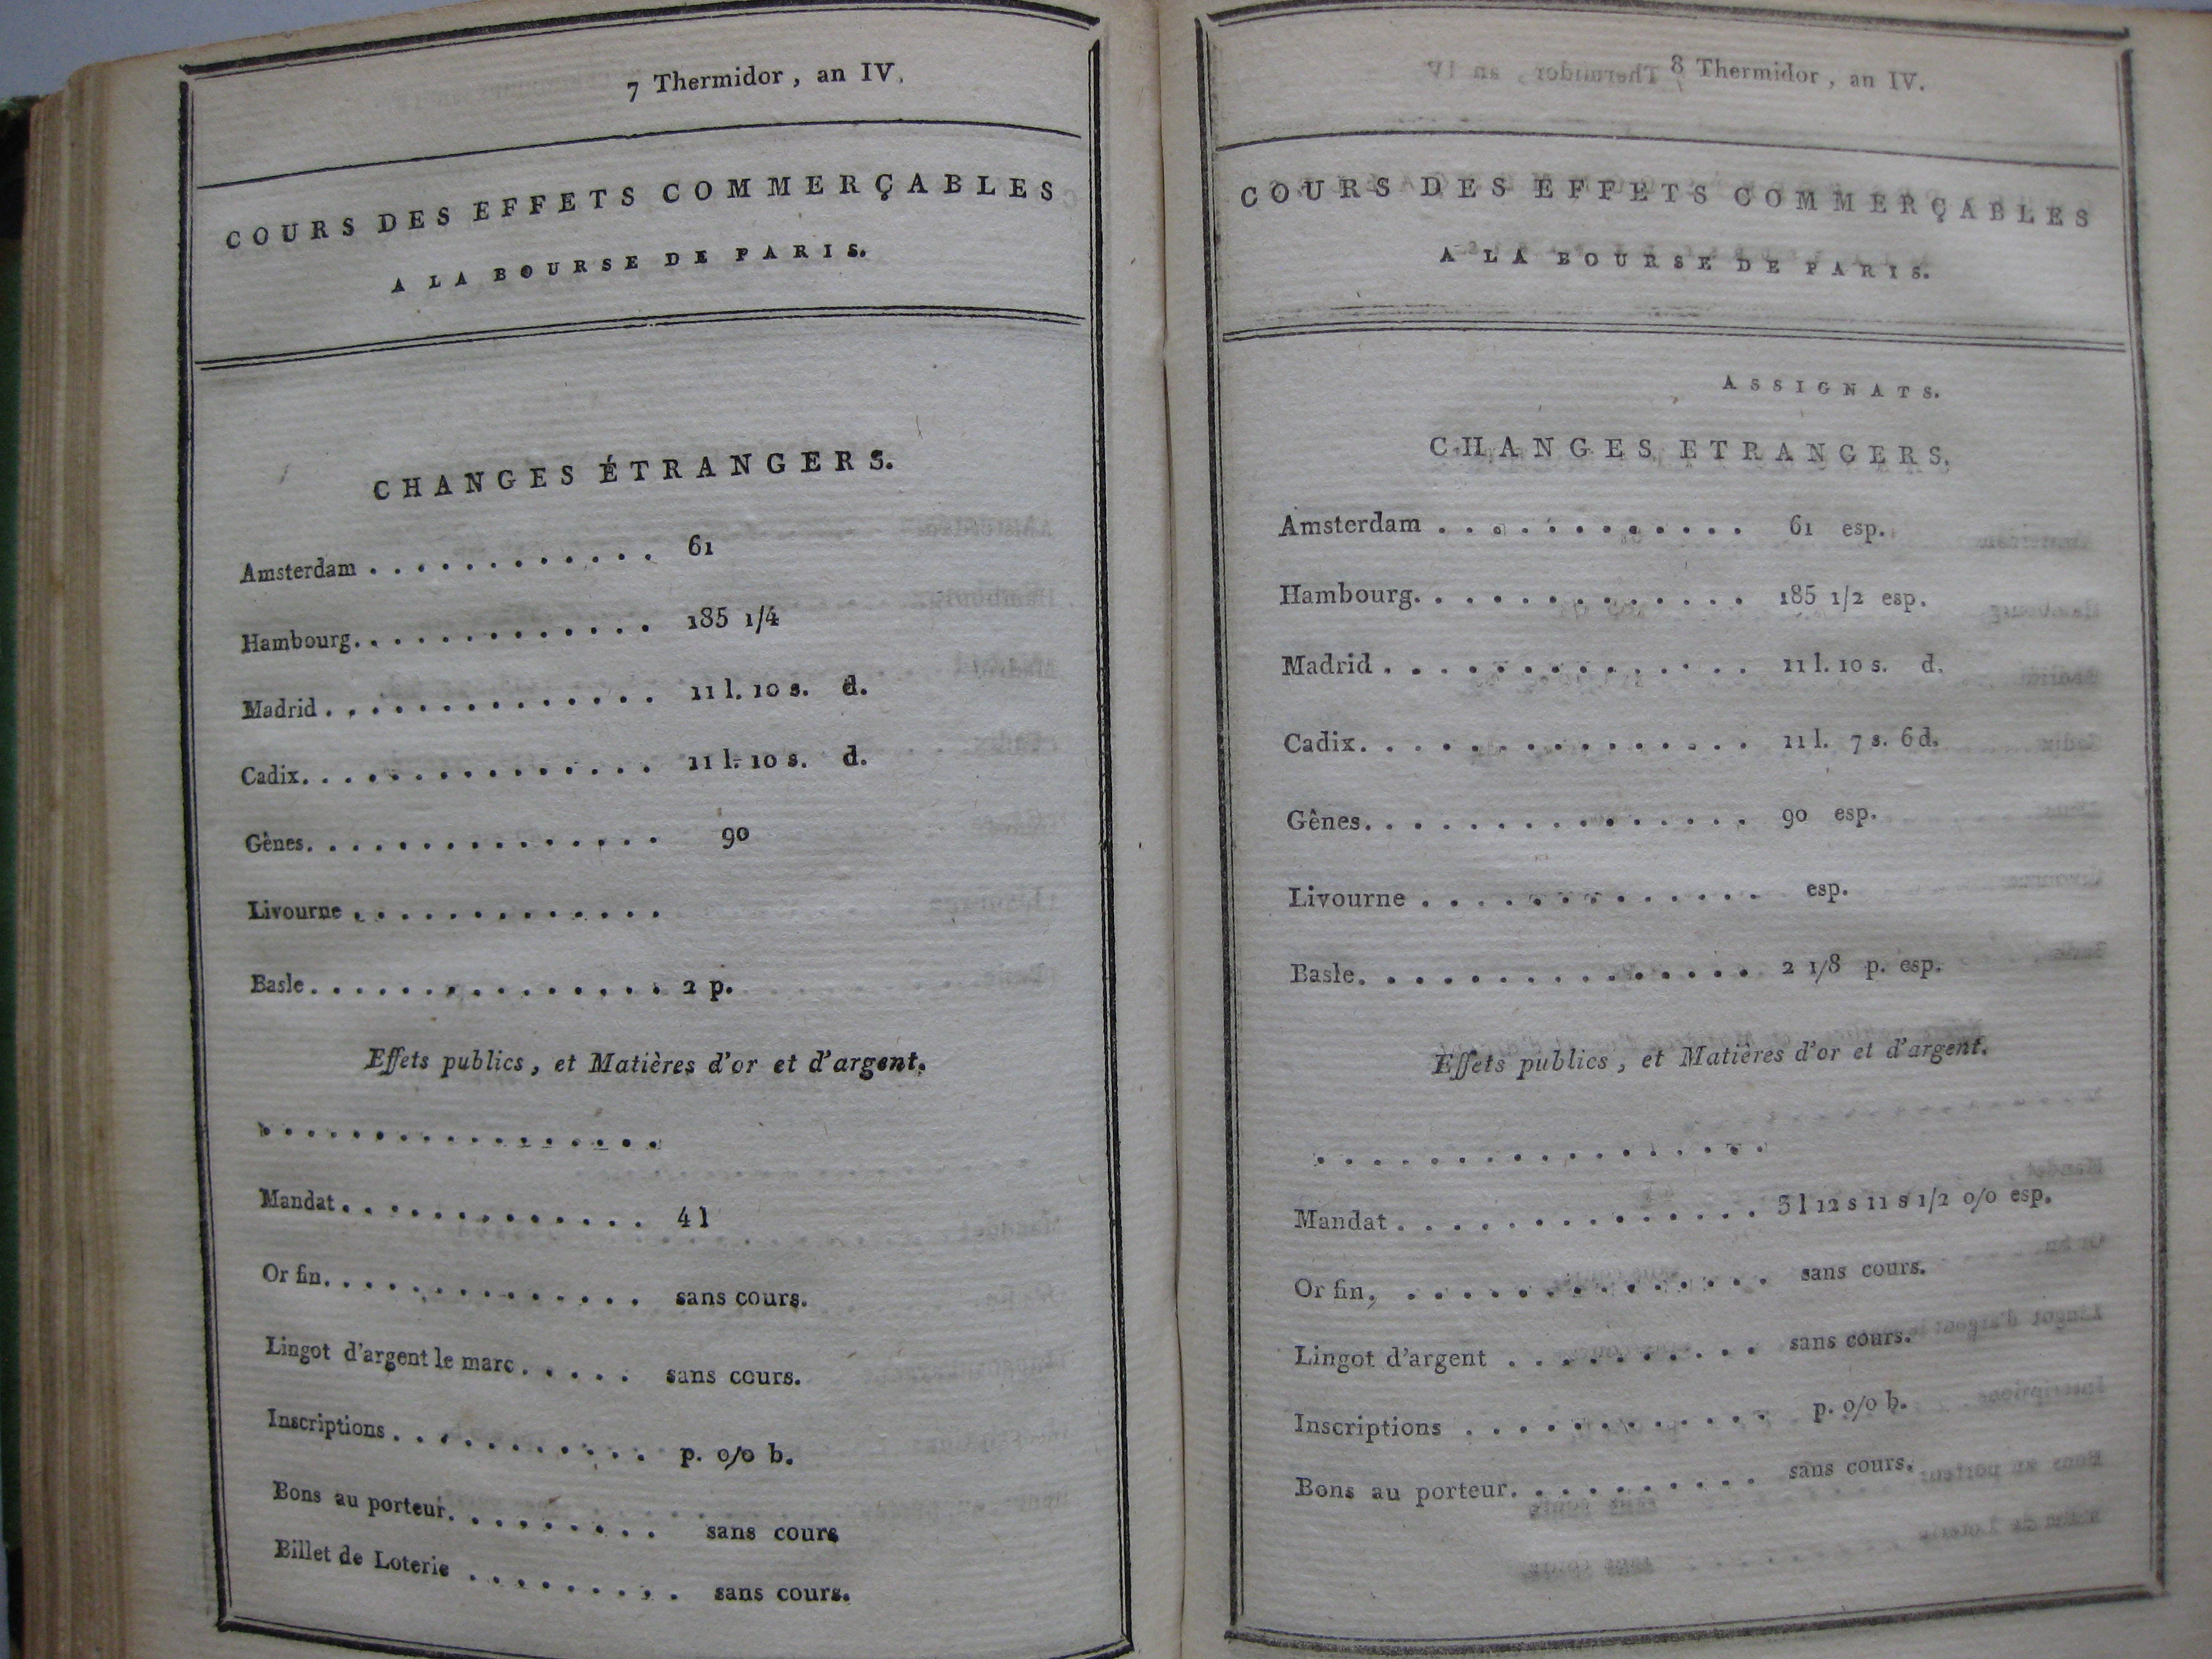 7 Thermidor, an IV.
COURS DES EFFETS COMMERÇABLES
A LA BOURSE DE PARIS.
CHANGES ÉTRANGERS.
Amsterdam . . . . . . . . . . . . 61
Hambourg. . . . . . . . . . . . . 185 1/4
Madrid . . . . . . . . . . . . . . 11 l. 10 s. d.
Cadix. . . . . . . . . . . . . . . 11 l. 10 s. d.
Gênes. . . . . . . . . . . . . . . 90
Livourne . . . . . . . . . . . . .
Basle. . . . . . . . . . . . . . . 2 p.
Effets publics, et Matières d'or et d'argent.
. . . . . . . . . . . . . . . . . .
Mandat. . . . . . . . . . . . . 4 l
Or fin. . . . . . . . . . . . . . sans cours.
Lingot d'argent le marc . . . . . sans cours.
Inscriptions . . . . . . . . . . . p. 0/0 b.
Bons au porteur. . . . . . . . . sans cours
Billet de Loterie . . . . . . . . . sans cours.
8 Thermidor, an IV.
COURS DES EFFETS COMMERÇABLES
A LA BOURSE DE PARIS.
ASSIGNATS.
CHANGES ETRANGERS.
Amsterdam . . . . . . . . . . . . 61 esp.
Hambourg. . . . . . . . . . . . . 185 1/2 esp.
Madrid . . . . . . . . . . . . . . 11 l. 10 s. d.
Cadix. . . . . . . . . . . . . . . 11 l. 7 s. 6 d.
Gênes. . . . . . . . . . . . . . . 90 esp.
Livourne . . . . . . . . . . . . . esp.
Basle. . . . . . . . . . . . . . . 2 1/8 p. esp.
Effets publics, et Matières d'or et d'argent.
. . . . . . . . . . . . . . . . . .
Mandat . . . . . . . . . . . . . . 3 l 12 s 11 s 1/2 0/0 esp.
Or fin, . . . . . . . . . . . . . . sans cours.
Lingot d'argent . . . . . . . . . . sans cours.
Inscriptions . . . . . . . . . . . . p. 0/0 b.
Bons au porteur. . . . . . . . . . sans cours.